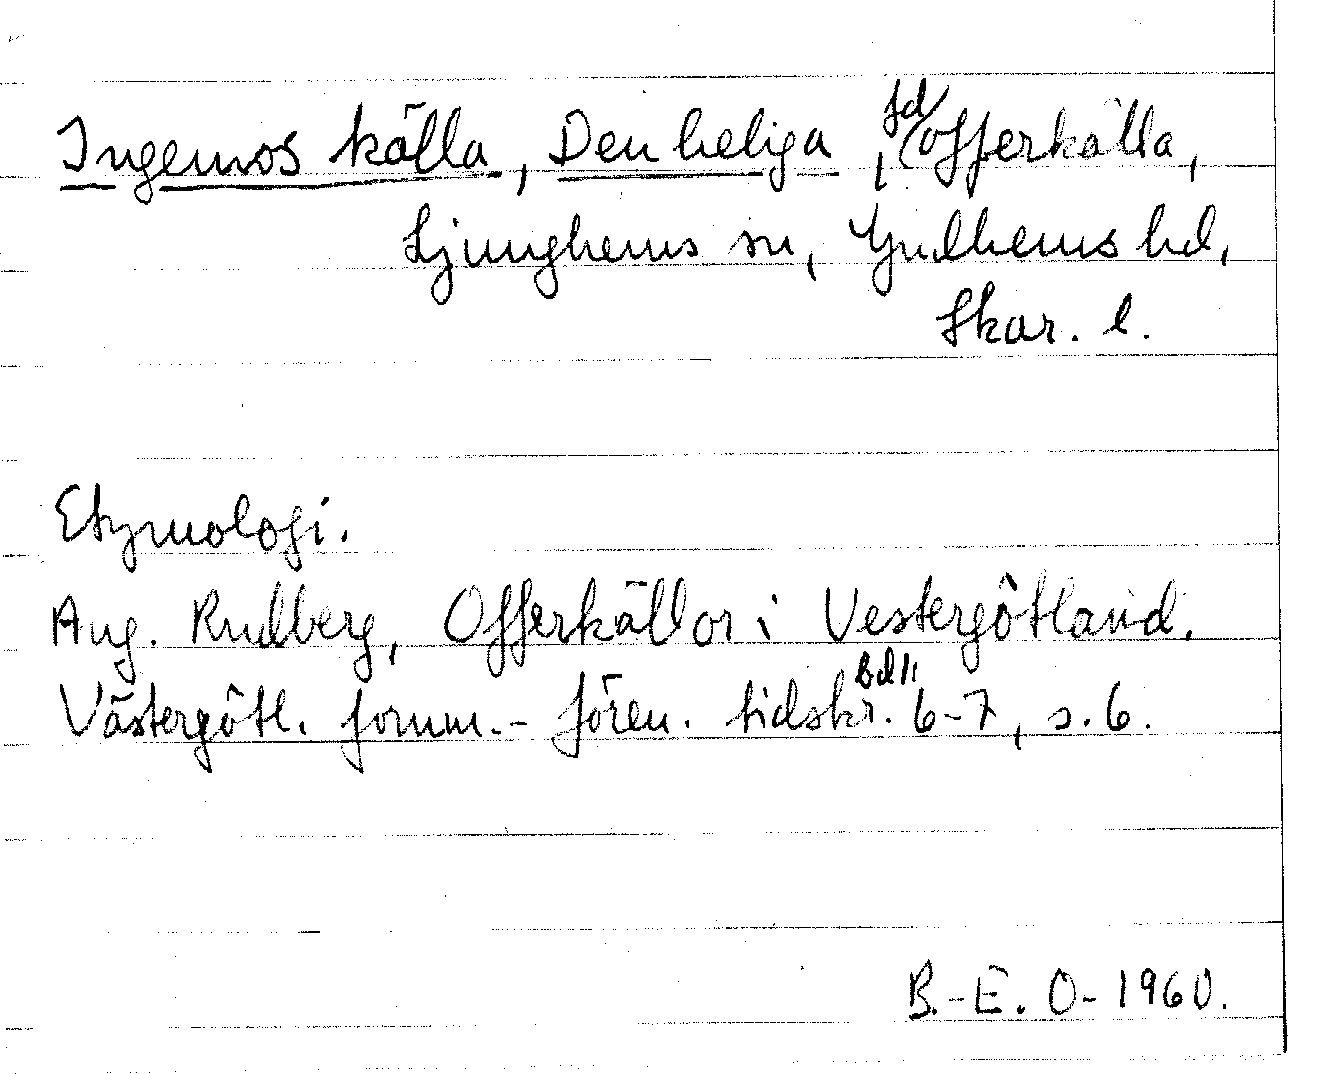 Ingemos källa, Den heliga, fd offerkälla,
Ljunghems sn, Gudhems hd,
Skar. l.
Etymologi.
Aug. Rudberg, Offerkällor i Vestergötland.
Västergötl. fornm.-fören. tidskr. Bd 1: 6-7, s. 6.
B.-E. O- 1960.